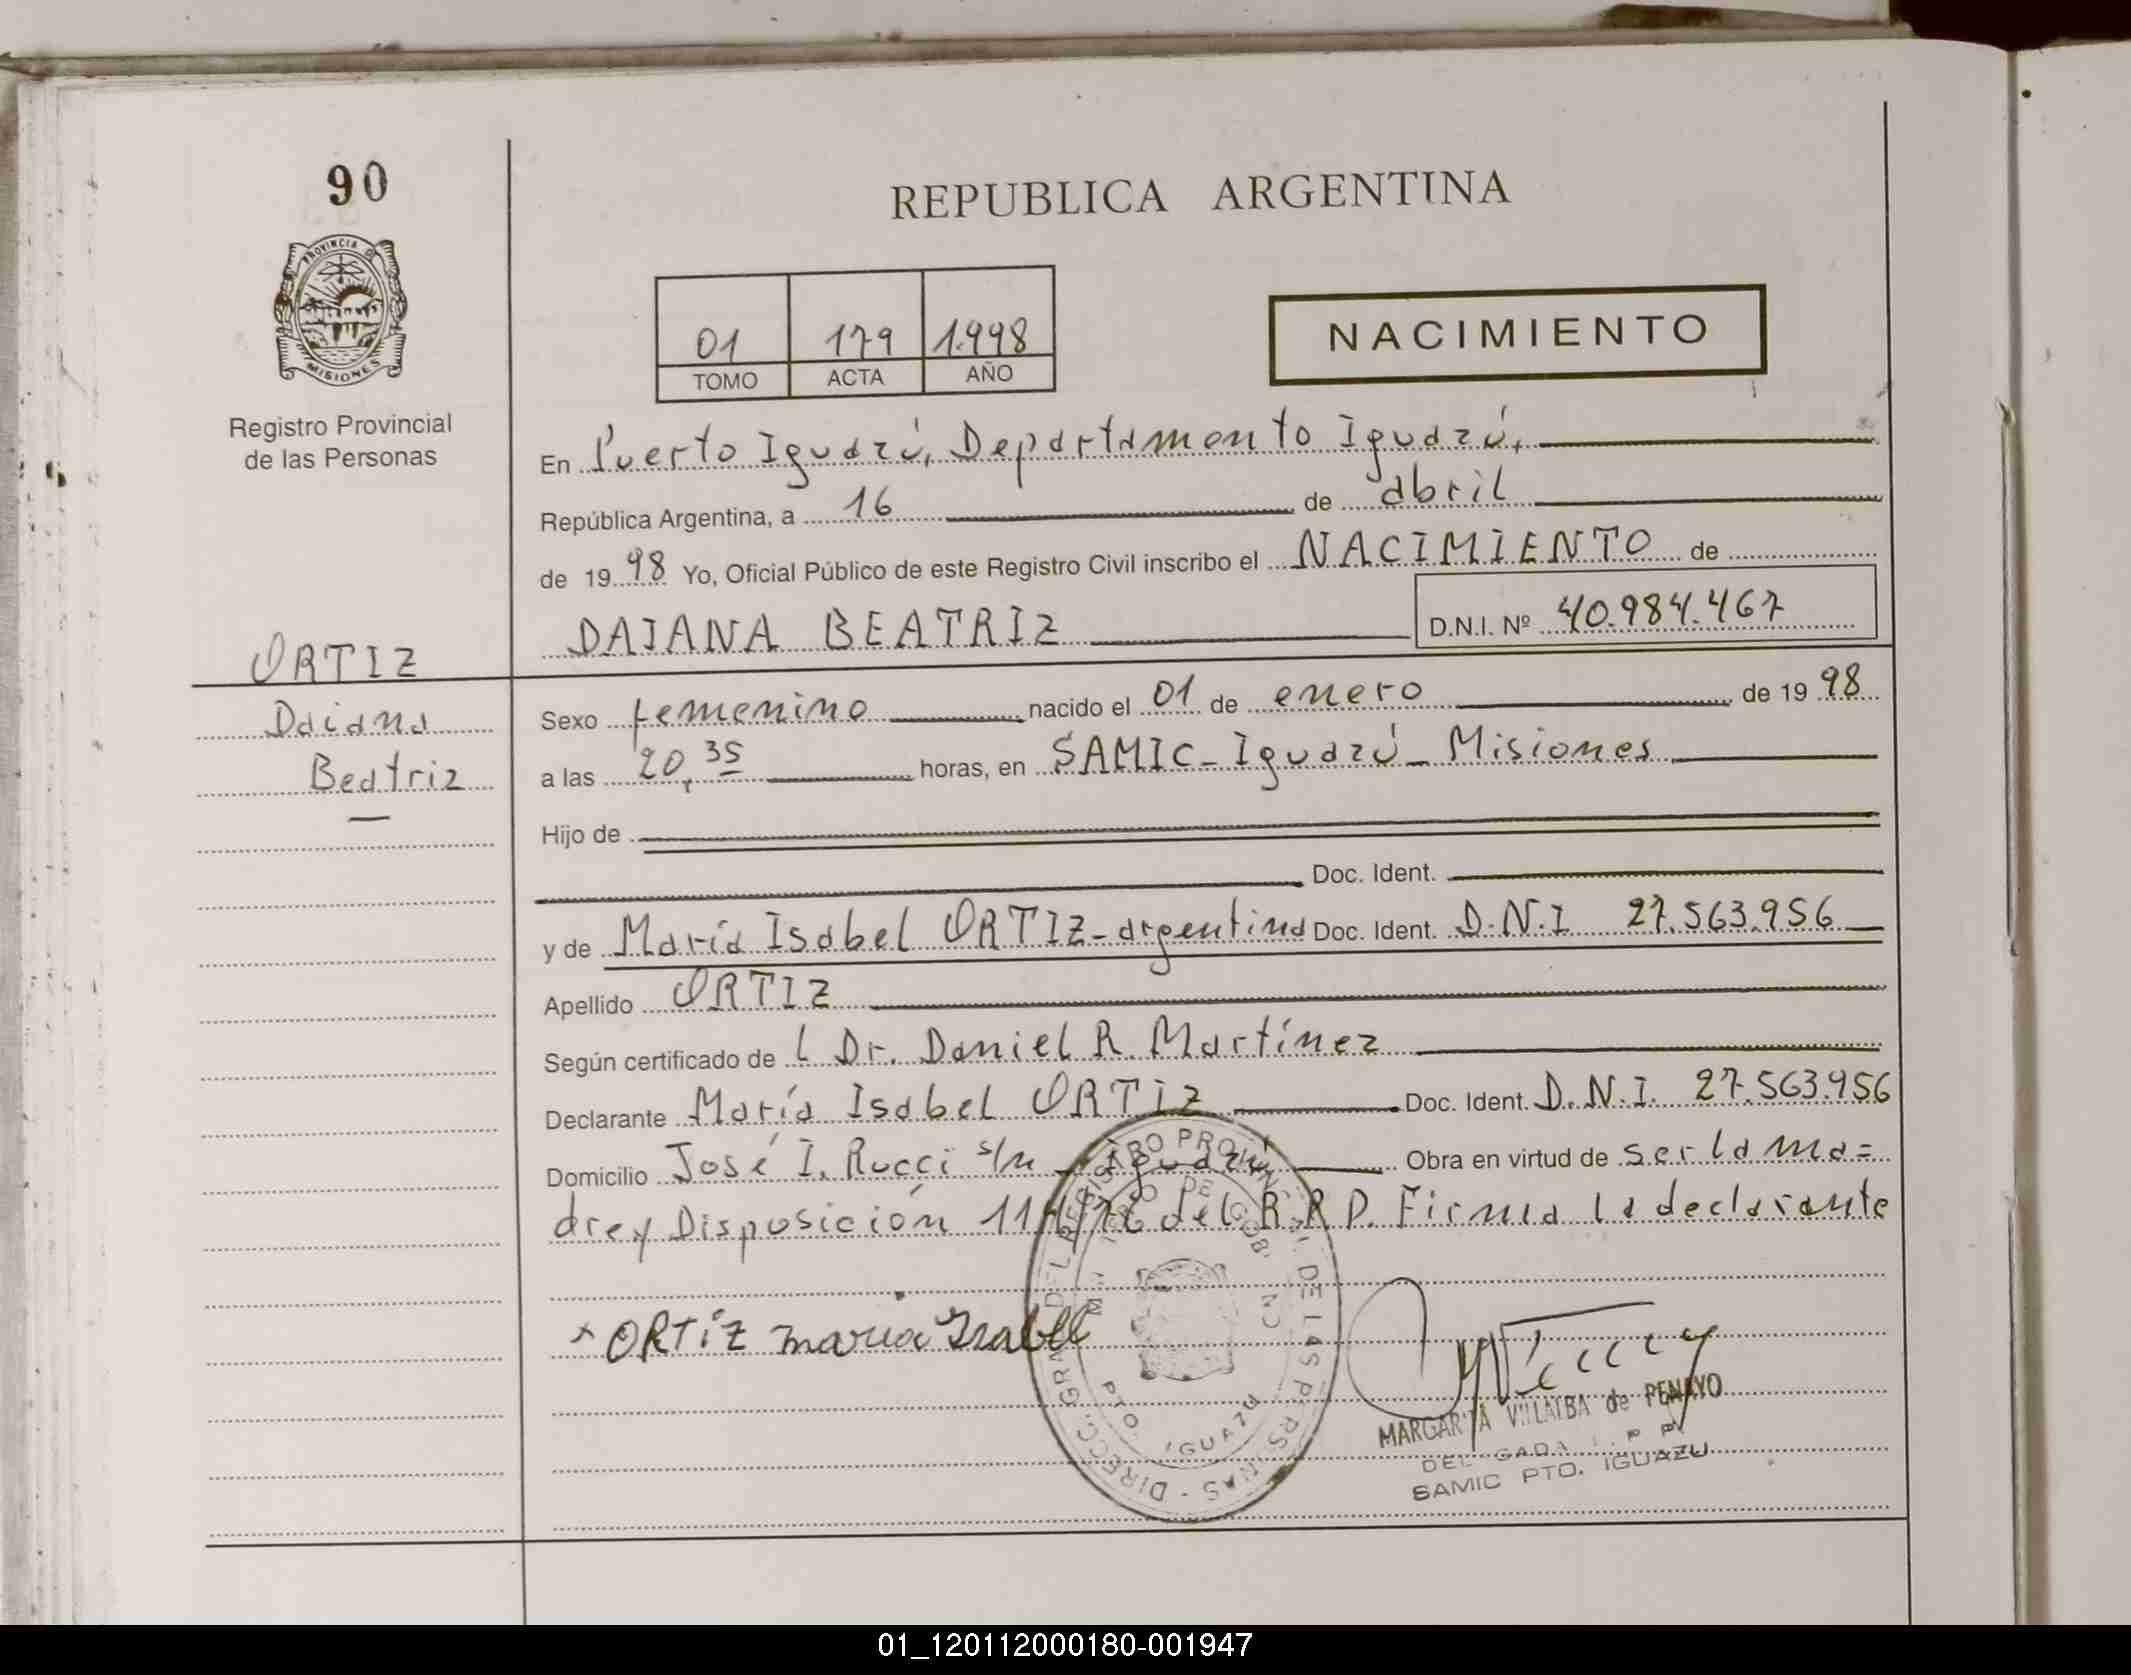 90
PROVINCIA DE
MISIONES
Registro Provincial
de las Personas
REPUBLICA ARGENTINA
01 179 1.998
TOMO ACTA AÑO
NACIMIENTO
En Puerto Iguazú, Departamento Iguazú,
República Argentina, a 16 de abril
de 19 98 Yo, Oficial Público de este Registro Civil inscribo el NACIMIENTO de
DAIANA BEATRIZ D.N.I. Nº 40.984.467
ORTIZ
Daiana
Beatriz
Sexo femenino nacido el 01 de enero de 19 98
a las 20,35 horas, en SAMIC - Iguazú - Misiones
Hijo de
Doc. Ident.
y de María Isabel ORTIZ - argentina Doc. Ident. D.N.I 27.563.956
Apellido ORTIZ
Según certificado de l Dr. Daniel R. Martínez
Declarante María Isabel ORTIZ Doc. Ident. D.N.I. 27.563.956
Domicilio José I. Rucci s/n - Iguazú Obra en virtud de ser la ma=
dre y Disposición 11/76 del R.P.P. Firma la declarante
x ORTiZ maria Isabel
DIRECC. GRAL DEL REGISTRO PROVINCIAL DE LAS PERSONAS
PTO. IGUAZU
MARGARITA VILLALBA de PENAYO
DELEGADA R P P
SAMIC PTO. IGUAZU
01_120112000180-001947